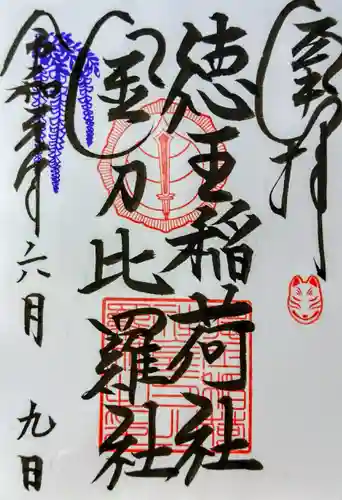 奉拝
徳王稲荷社
金刀比羅社
令和六年
六月
九日